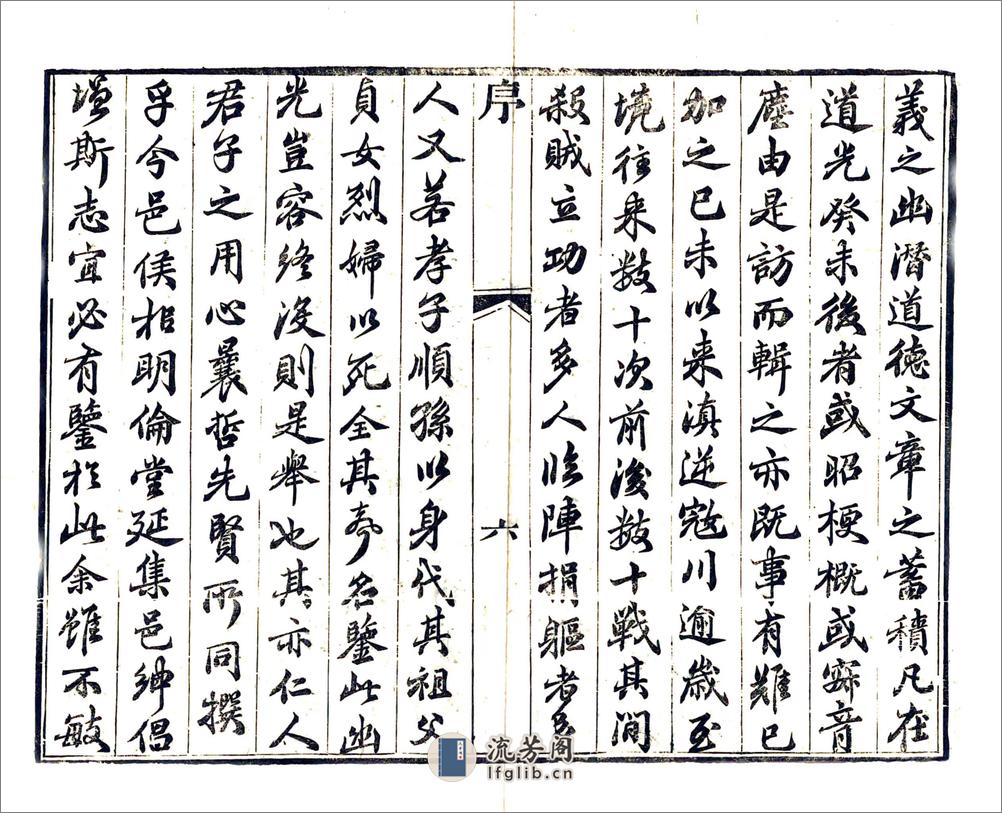 義之幽潛道德文章之蓄積凡在
道光癸未後者或昭梗概或寂音
塵由是訪而輯之亦旣事有難已
加之已未以来滇逆寇川逾歲至
境往来数十次前後数十戰其間
殺賊立功者多人臨陣捐軀者多
序
六
人又若孝子順孫以身代其祖父
貞女烈婦以死全其名鑒此幽
光豈容終沒則是舉也其亦仁人
君子之用心曩哲先賢所同撰
孚今邑侯於明倫堂延集邑紳倡
斯志宜必有鑒於此余雖不敏
流芳阁
lfglib.cn